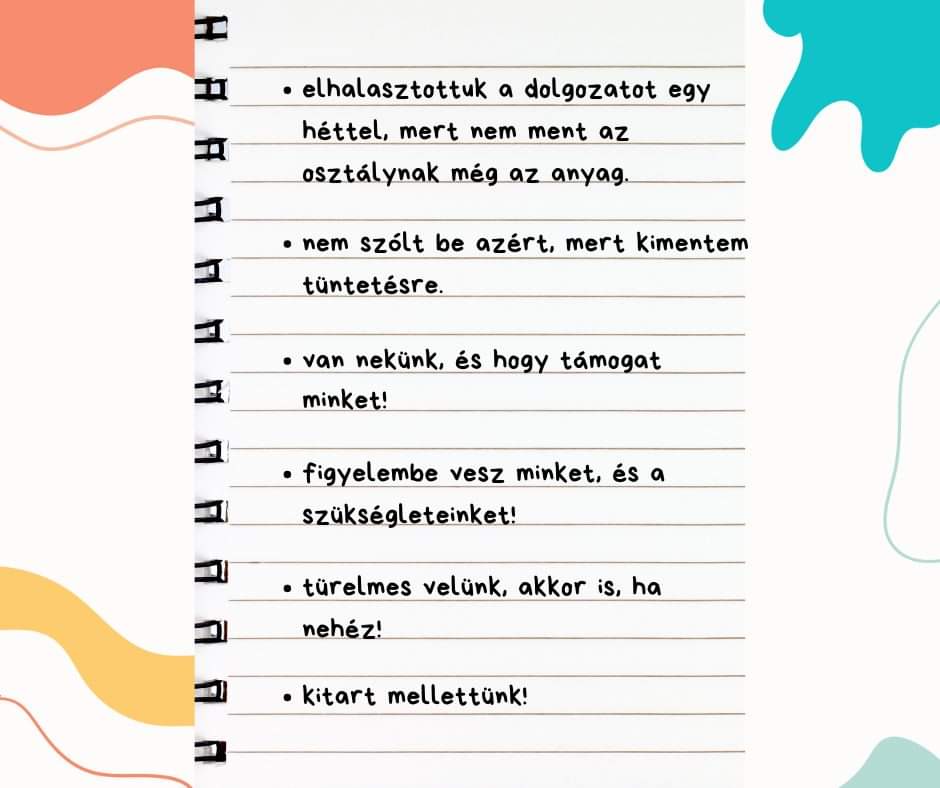 • elhalasztottuk a dolgozatot egy
héttel, mert nem ment az
osztálynak még az anyag.
• nem szólt be azért, mert kimentem
tüntetésre.
• van nekünk, és hogy támogat
minket!
• figyelembe vesz minket, és a
szükségleteinket!
• türelmes velünk, akkor is, ha
nehéz!
• kitart mellettünk!